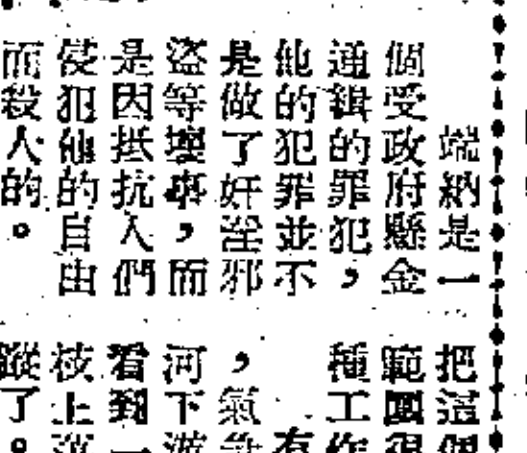 端納是一
個受政府懸金
通緝的罪犯，
他的犯罪並不
是做了奸淫邪
盜等壞事，而
是因抵抗人們
侵犯他的自由
而殺人的。
把這個
範圍很
種工作
有
，氣
河下游
看到一
枝上
蹤了。